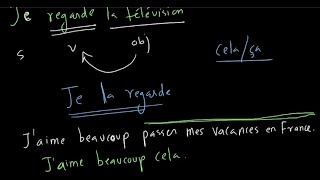 Je regarde la télévision
S v obj cela/ça
Je la regarde
J'aime beaucoup passer mes vacances en France.
J'aime beaucoup cela.